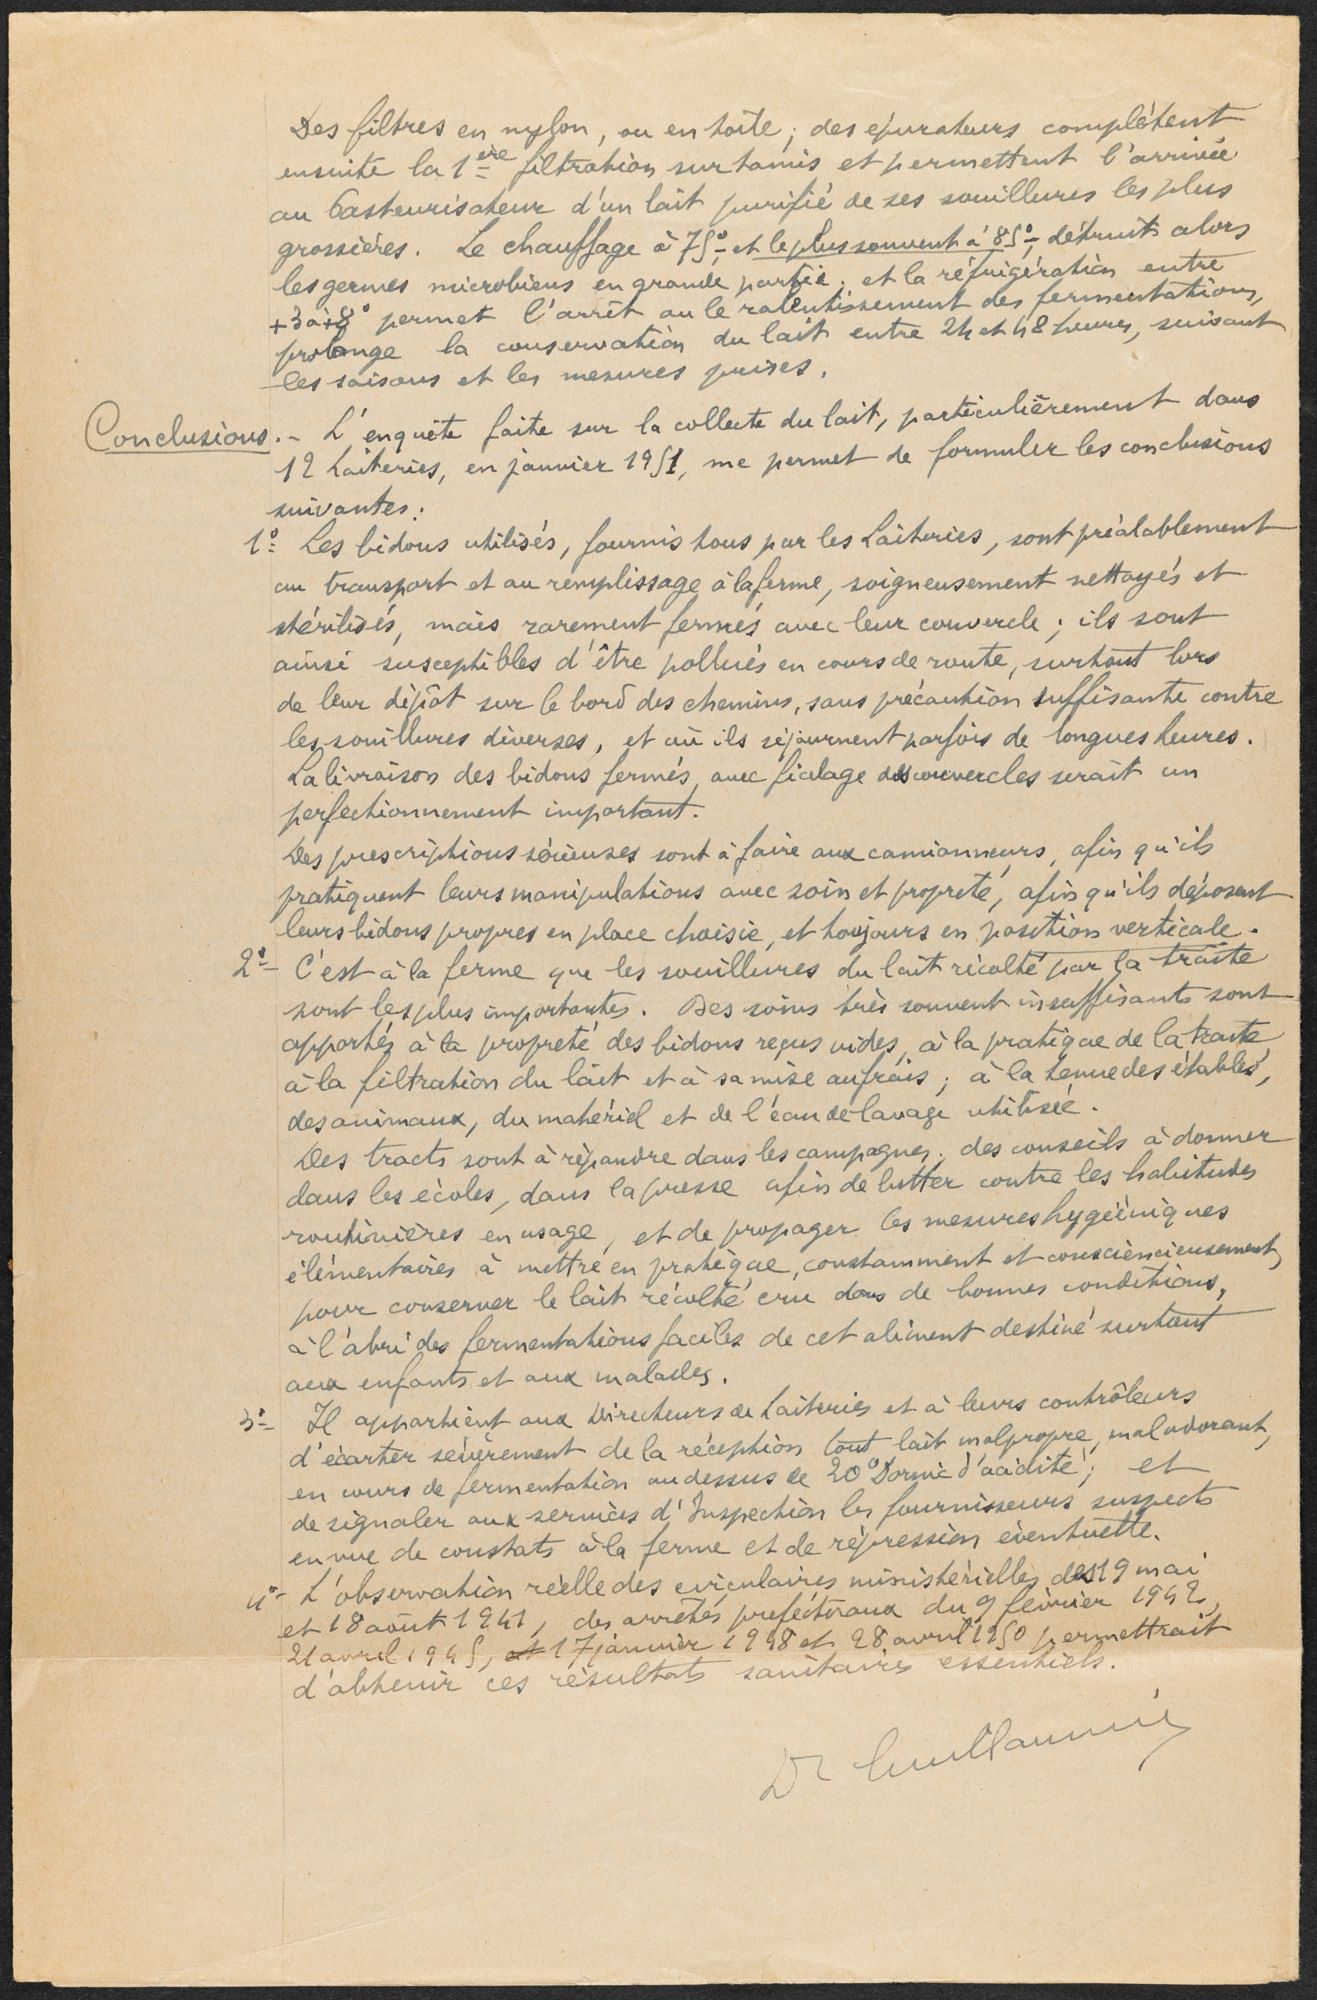 Des filtres en nylon, ou en toile, des épurateurs complètent
ensuite la 1ère filtration sur tamis et permettent l'arrivée
au Pasteurisateur d'un lait purifié de ses souillures les plus
grossières. Le chauffage à 75°, et le plus souvent à 85°, détruit alors
les germes microbiens en grande partie; et la réfrigération entre
+3 à +8° permet l'arrêt ou le ralentissement des fermentations,
prolonge la conservation du lait entre 24 et 48 heures, suivant
les saisons et les mesures prises.
Conclusions.- L'enquête faite sur la collecte du lait, particulièrement dans
12 Laiteries, en janvier 1951, me permet de formuler les conclusions
suivantes:
1° Les bidons utilisés, fournis tous par les Laiteries, sont préalablement
au transport et au remplissage à la ferme, soigneusement nettoyés et
stérilisés, mais rarement fermés avec leur couvercle; ils sont
ainsi susceptibles d'être pollués en cours de route, surtout lors
de leur dépôt sur le bord des chemins, sans précaution suffisante contre
les souillures diverses, et où ils séjournent parfois de longues heures.
La livraison des bidons fermés, avec ficelage des couvercles serait un
perfectionnement important.
Des prescriptions sérieuses sont à faire aux camionneurs, afin qu'ils
pratiquent leurs manipulations avec soin et propreté, afin qu'ils déposent
leurs bidons propres en place choisie, et toujours en position verticale.
2° C'est à la ferme que les souillures du lait récolté par la traite
sont les plus importantes. Des soins très souvent insuffisants sont
apportés à la propreté des bidons reçus vides, à la pratique de la traite
à la filtration du lait et à sa mise au frais; à la tenue des étables,
des animaux, du matériel et de l'eau de lavage utilisée.
Des tracts sont à répandre dans les campagnes; des conseils à donner
dans les écoles, dans la presse afin de lutter contre les habitudes
routinières en usage, et de propager les mesures hygiéniques
élémentaires à mettre en pratique, constamment et consciencieusement,
pour conserver le lait récolté cru dans de bonnes conditions,
à l'abri des fermentations faciles de cet aliment destiné surtout
aux enfants et aux malades.
3° Il appartient aux Directeurs de Laiteries et à leurs contrôleurs
d'écarter sévèrement de la réception tout lait malpropre, malodorant,
en cours de fermentation au dessus de 20° Dornic d'acidité; et
de signaler aux services d'Inspection les fournisseurs suspects
en vue de constats à la ferme et de répression éventuelle.
4° L'observation réelle des circulaires ministérielles des 19 mai
et 18 août 1941, des arrêtés préfectoraux du 9 février 1942,
21 avril 1945, 17 janvier 1948 et 28 avril 1950 permettrait
d'obtenir ces résultats sanitaires essentiels.
Dr